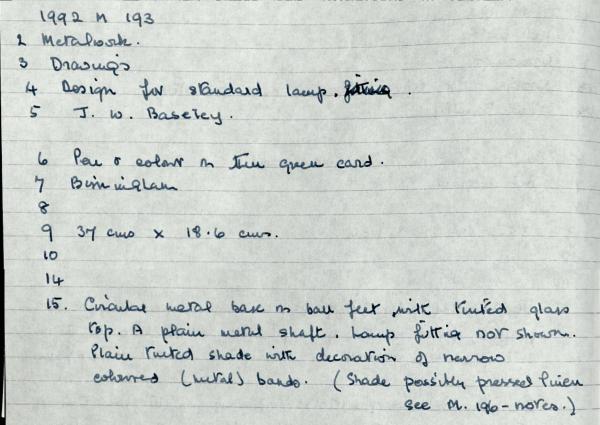 1992 M 193
2 Metalwork.
3 Drawings
4 Design for standard lamp.
5 J. W. Baseley.
6 Pen & colour on thin green card.
7 Birmingham
8
9 37 cms x 18.6 cms.
10
14
15. Circular metal base on ball feet with tinted glass
top. A plain metal shaft. Lamp fitting not shown.
Plain tinted shade with decoration of narrow
coloured (metal) bands. (Shade possibly pressed linen
see M. 196 - notes.)